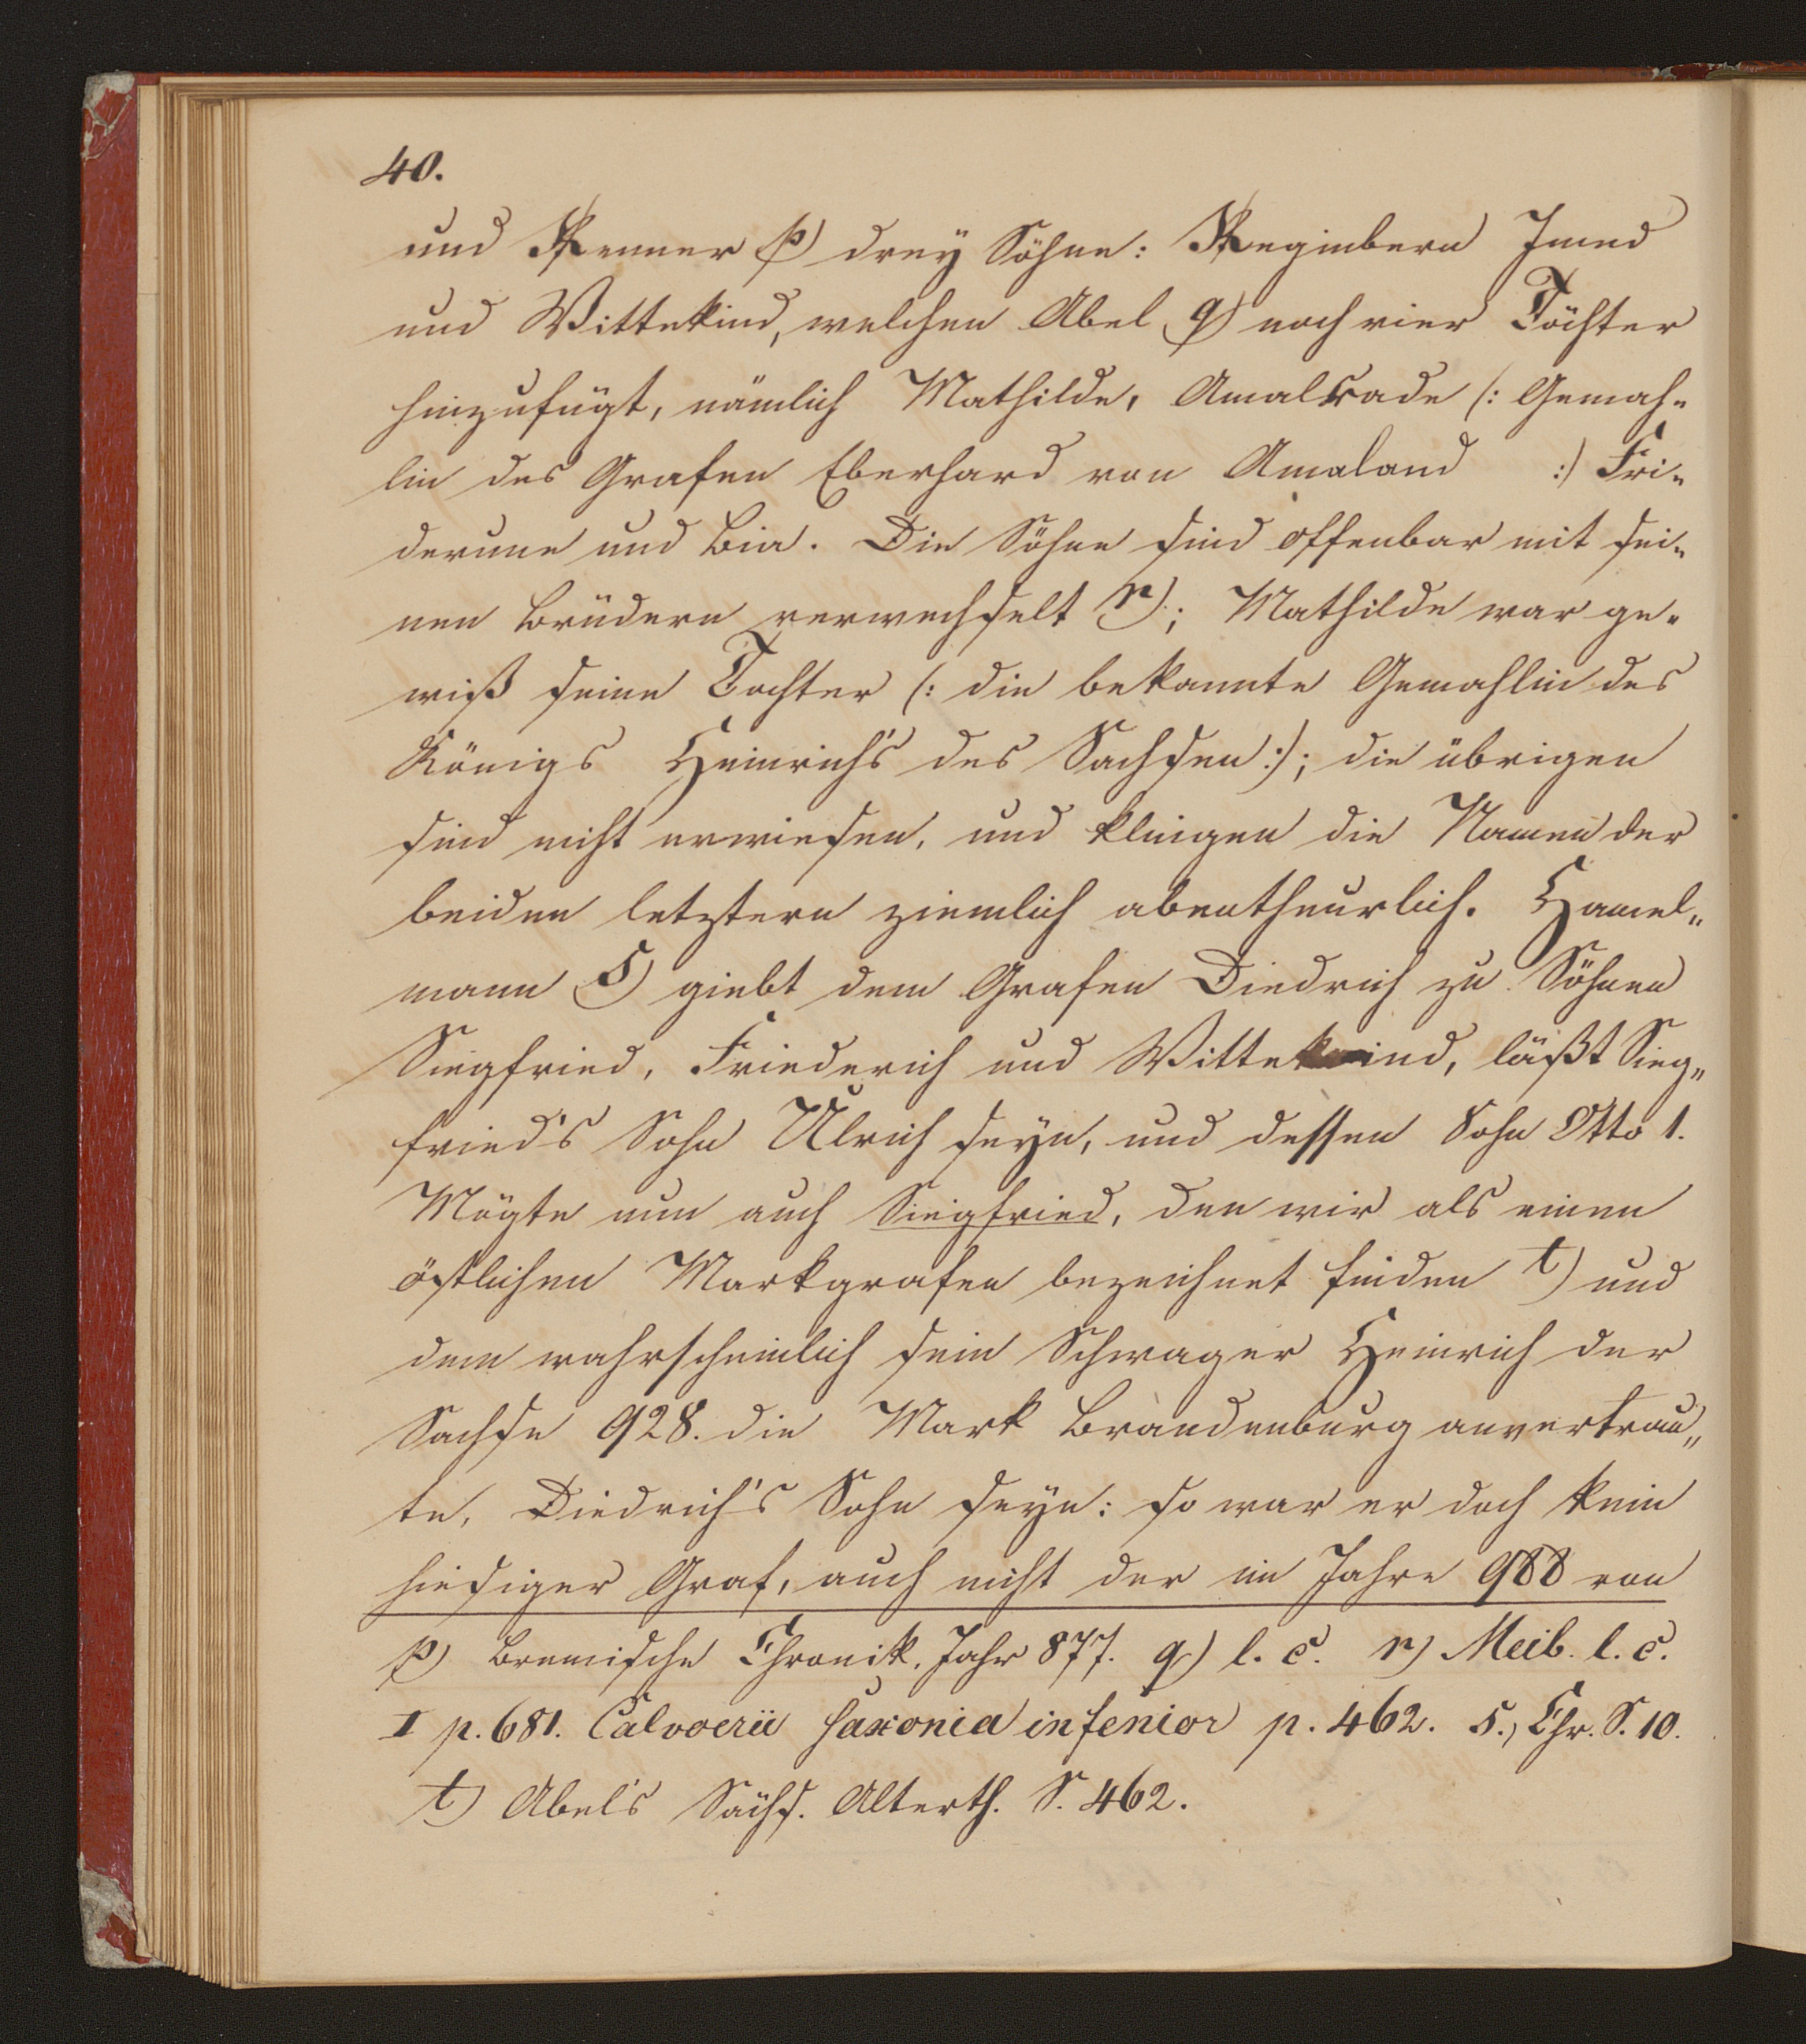 40.
und Renner p) drey Söhne: Reginbern Imed
und Wittekind, welchen Abel q) noch vier Töchter
hinzufügt, nämlich Mathilde, Amalrade (: Gemah-
lin des Grafen Eberhard von Amaland :) Fri-
derune und Bia. Die Söhne sind offenbar mit sei-
nen Brüdern verwechselt r); Mathilde war ge-
wiß seine Tochter (: die bekannte Gemahlin des
Königs Heinrich's des Sachsen :); die übrigen
sind nicht erwiesen, und klingen die Namen der
beiden letztern ziemlich abentheurlich. Hamel-
mann s) giebt dem Grafen Diedrich zu Söhnen
Siegfried, Friederich und Wittekind, läßt Sieg-
fried's Sohn Ulrich seyn, und dessen Sohn Otto 1.
Mögte nun auch Siegfried, den wir als einen
östlichen Markgrafen bezeichnet finden t) und
dem wahrscheinlich sein Schwager Heinrich der
Sachse 928. die Mark Brandenburg anvertrau-
te, Diedrich's Sohn seyn: so war er doch kein
hiesiger Graf, auch nicht der im Jahre 988 von
p) Bremische Chronik. Jahr 877. q) l. c. r) Meib. l. c.
I p. 681. Calvoerii saxonia inferior p. 462. s., Chr. S. 10.
t) Abel's Sächs. Alterth. S. 462.